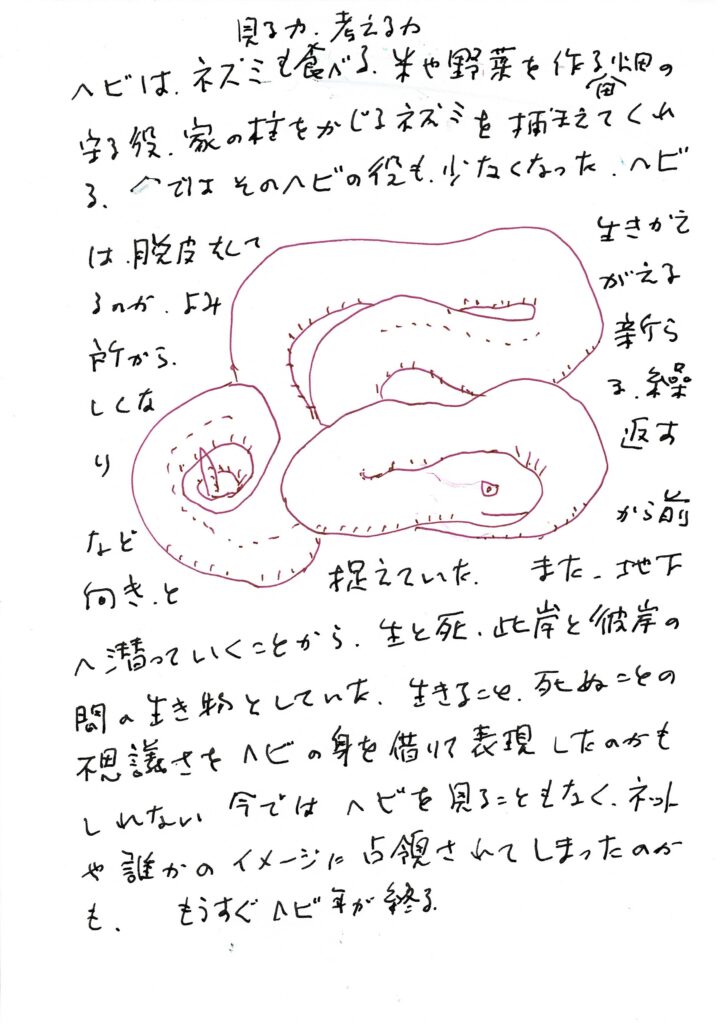 見る力、考える力
ヘビは、ネズミも食べる、米や野菜を作る畑の
守る役、家の柱をかじるネズミを捕まえてくれ
る、今ではそのヘビの役も、少なくなった、ヘビ
は、脱皮をして 生きかえ
るのか、よみ がえる
所から、 新ら
しくな る、繰
り 返す
など から前
向き、と 捉えていた、 また、地下
へ潜っていくことから、生と死、此岸と彼岸の
間の生き物としていた、生きること、死ぬことの
不思議さをヘビの身を借りて表現したのかも
しれない 今ではヘビを見ることもなく、ネット
や誰かのイメージに占領されてしまったのか
も、 もうすぐヘビ年が終る、